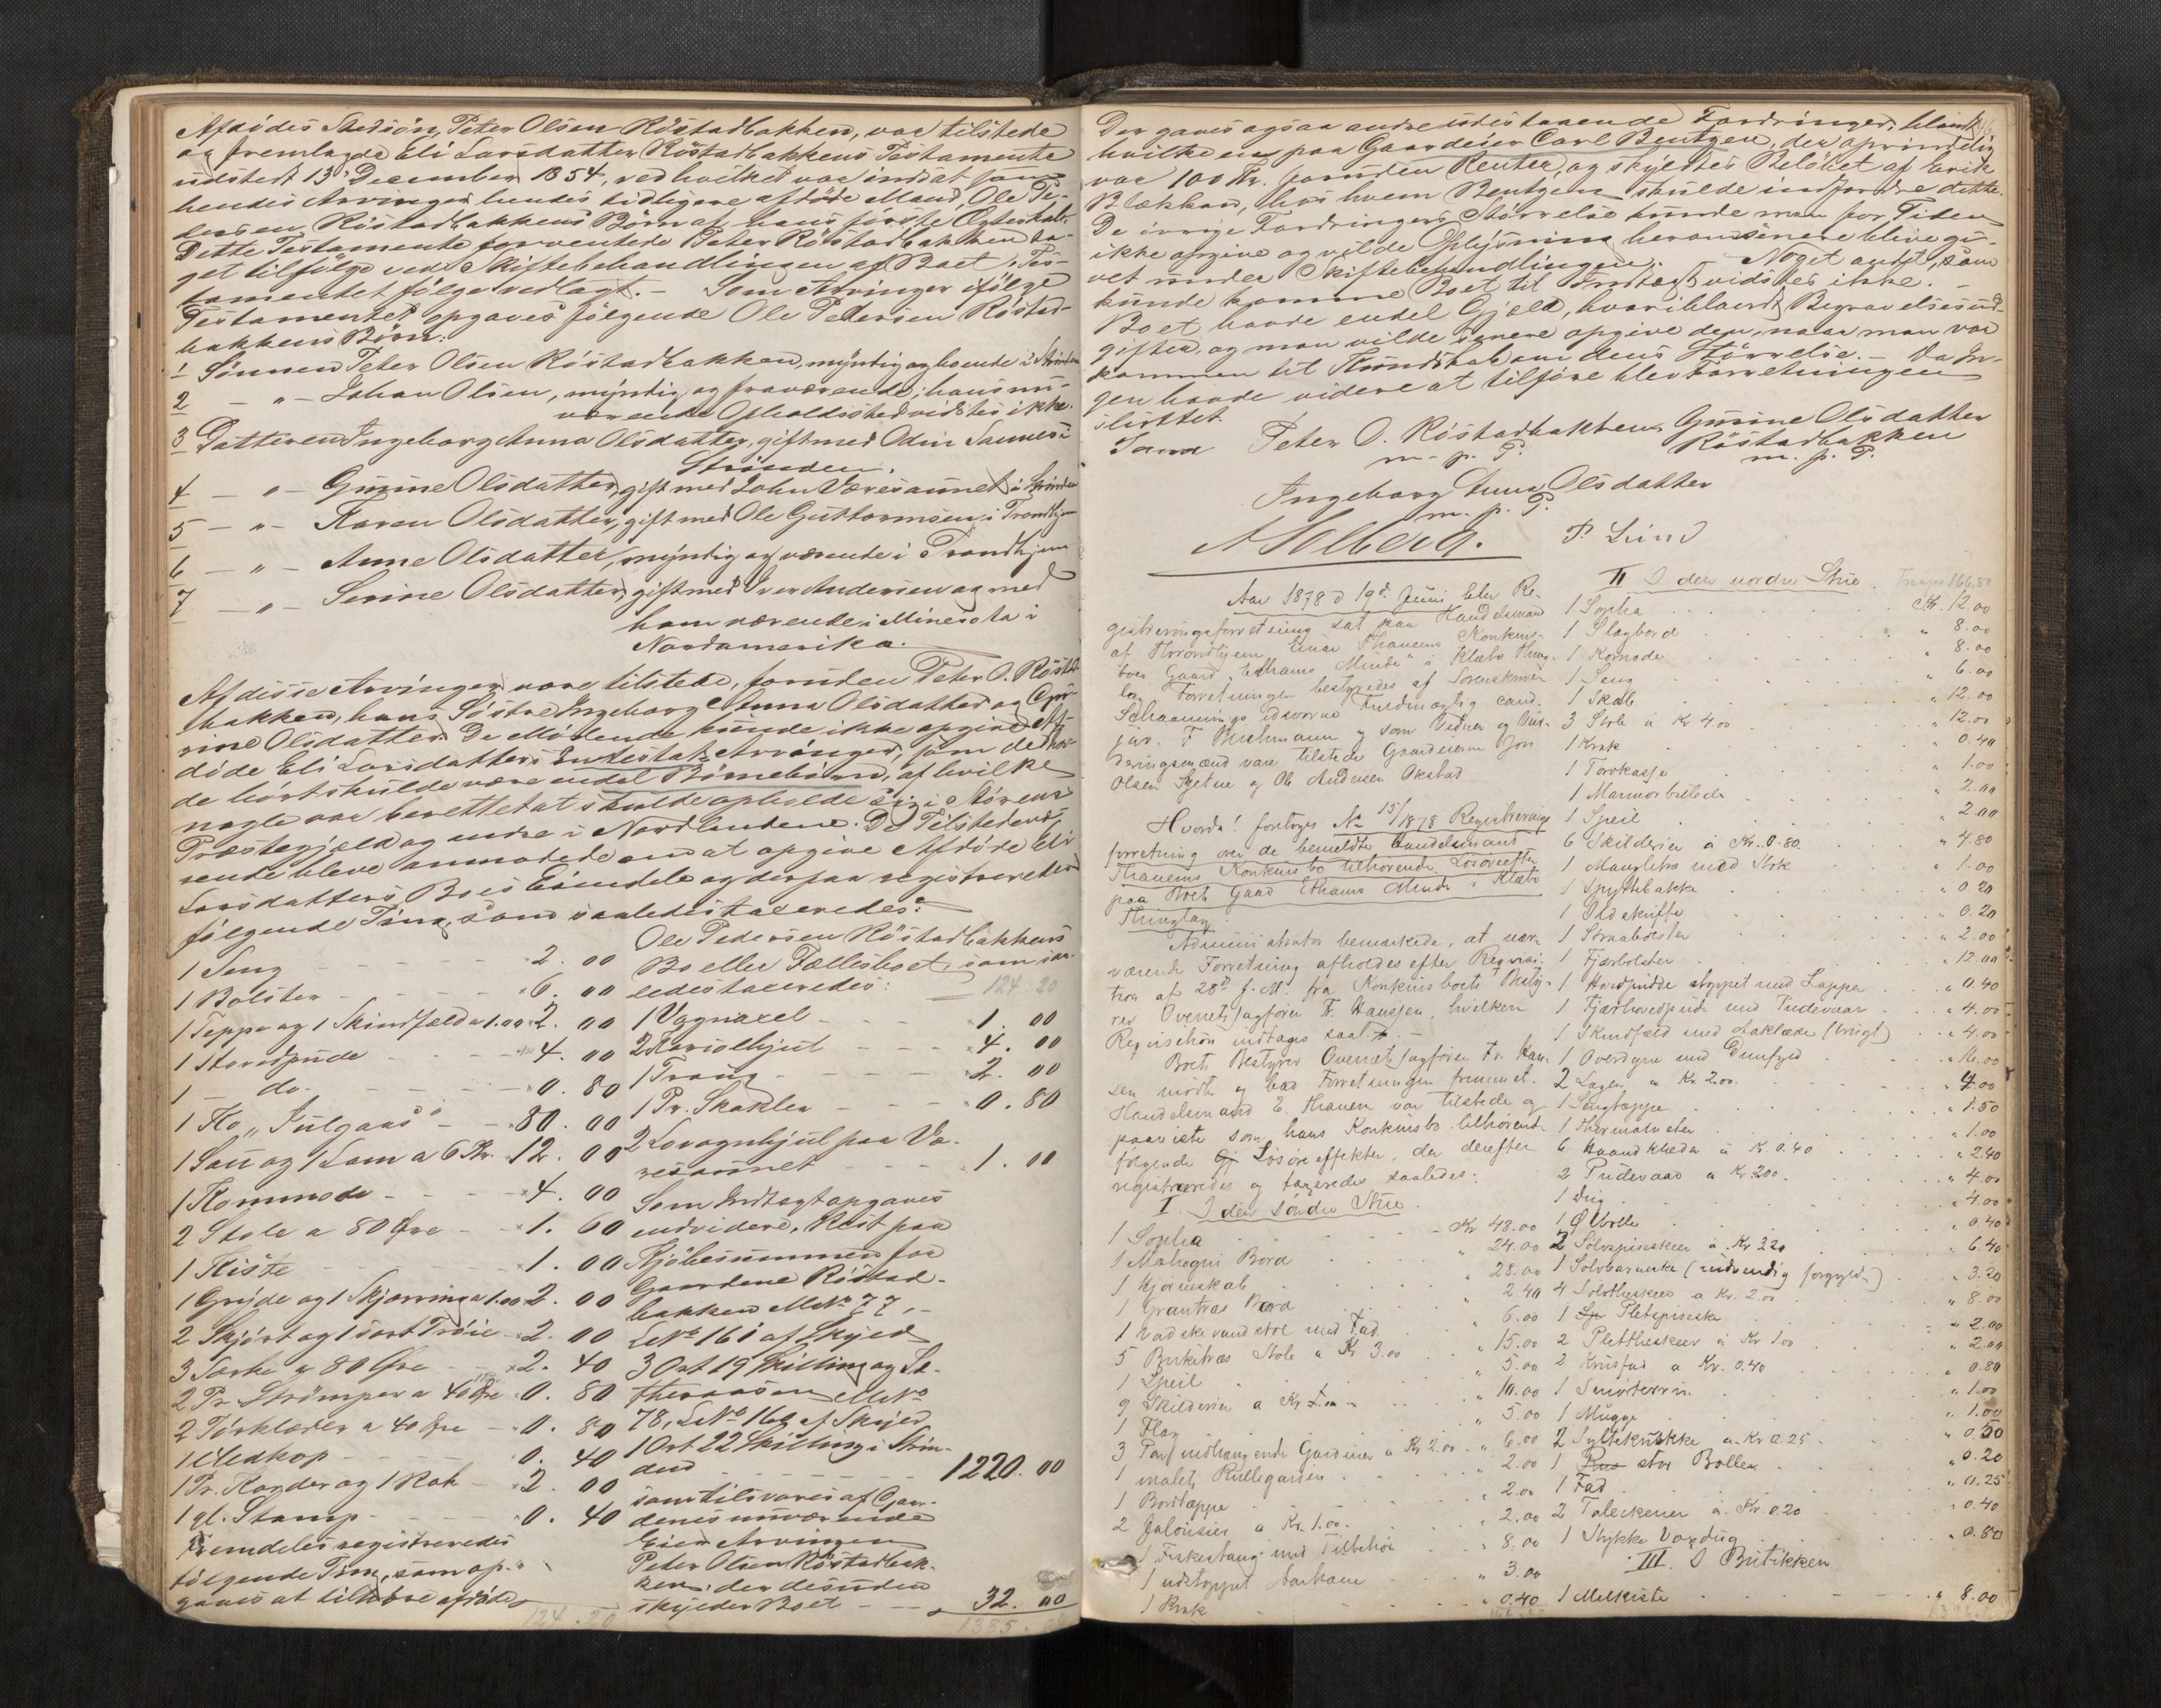 Afdødes Stedsøn, Peter Olsen Röstadbakken, var tilstede
og fremlagde Eli Larsdatter Röstadbakkens Testamente
udstedt 13de December 1854, ved hvilket var indsat som
hendes Arvinger hendes tidligere afdöde Mand, Ole Pe-
dersen Röstadbakkens Börn af hans förste Ægteskab.
Dette Testamente forventede Peter Röstadbakken ta-
get tilfölge ved Skiftebehandlingen af Boet. Tes-
tamentet fölger vedlagt. - Som Arvinger ifölge
Testamentet opgaves fölgende Ole Pedersen Röstad-
bakkens Börn:
1 Sönnen Peter Olsen Röstadbakken, myndig og boende i Strinden
2 - " - Johan Olsen, myndig og fraværende; hans nu-
værende Opholdssted vidstes ikke.
3 Datteren Ingeborg Anna Olsdatter, gift med Odin Saunes i
Strinden.
4 - " - Gurine Olsdatter, gift med John Væresaunet i Strinden
5 - " - Karen Olsdatter, gift med Ole Guttormsen i Trondhjem
6 - " - Anne Olsdatter, myndig og værende i Trondhjem
7 - " - Serine Olsdatter, gift med Iver Andersen og med
ham værende i Minesota i
Nordamerika.
Af disse Arvinger vare tilstede, foruden Peter O. Röstad-
bakken, hans Söstre Ingeborg Anna Olsdatter og Gu-
rine Olsdatter. De Mödende kunde ikke opgive Af-
döde Eli Larsdatters Intestat Arvinger, som de hav-
de hört skulde være endel Börnebörn, af hvilke
nogle var berettet at skulde opholde sig i Störens
Præstegjeld og andre i Nordlandene. De Tilstedevæ-
rende bleve anmodede om at opgive Afdöde Eli
Larsdatters Boes Eiendele og derpaa registreredes
fölgende Ting, som saaledes taxeredes:
1 Seng - 2.00
1 Bolster - 6.00
1 Teppe og 1 Skindfæld a 1.00 2.00
1 Hovedpude - 4.00
1 - do. - 0.80
1 Ko "Julgaas" - 80.00
1 Sau og 1 Lam a 6 Kr. 12.00
1 Kommode - 4.00
2 Stole a 80 Øre - 1.60
1 Kiste - 1.00
1 Gryde og 1 Skjærring a 1.00 2.00
2 Skjört og 1 sort Tröie - 2.00
3 Særke a 80 Øre - 2.40
2 Pr. Strömper a 40 Øre 0.80
2 Törklæder a 40 Øre - 0.80
1 Uldkop - 0.40
1 Pr. Karder og 1 Rok - 2.00
1 gl. Stamp - 0.40
Fremdeles registreredes
fölgende Ting, som op-
gaves at tilhöre afdöde
124.20
Ole Pedersen Röstadbakkens
Bo eller Fællesboet, som saa-
ledes taxeredes: 124 20
1 Vognaxel - 1.00
2 Kariolhjul - 4.00
1 Traug - 2.00
1 Pr. Skokler - 0.80
2 Lovognhjul paa Væ-
resaunet - 1.00
Som Indtægt opgaves
endvidere, Rest paa
Kjöbesummen for
Gaardene Röstad-
bakken M No 77,
L No 161 af Skyld
3 Ort 19 Skilling og St-
M No
78, L No 162 af Skyld
1 Ort 22 Skilling i Strin-
den - 1220.00
som tilsvares af Gaar-
denes nuværende
Eier Arvingen
Peter Olsen Röstadbak-
ken, der desuden
skylder Boet - 32.00
1385.
Der gaves ogsaa andre udestaaende Fordringer, blandt
hvilke en paa Gaardeier Carl Bentzen, der oprindelig
var 100 Kr. foruden Renter, og skyldtes Belöbet af Erik
Blækkan, hos hvem Bentzen skulde indfordre dette.
De övrige Fordringers Störrelse kunde man for Tiden
ikke opgive og vilde Oplysning herom senere blive gi-
vet under Skiftebehandlingen. - Noget andet, som
kunde komme Boet til Indtægt vidstes ikke. -
Boet havde endel Gjeld, hvoriblandt Begravelsesud-
gifter, og man vilde senere opgive den, naar man var
kommen til Kundskab om dens Störrelse. - Da In-
gen havde videre at tilföre blev Forretningen
sluttet.
Peter O. Röstadbakken Gurine Olsdatter
m. p. P. Röstadbakken
m. p. P.
Ingeborg Anna Olsdatter
m. p. P.
A Solberg. P. Lund
Aar 1878 d 19de Juni blev Re-
gistreringsforretning sat paa Handelsmand
af Throndhjem Einar Thanems Konkurs-
boes Gaard "Ethams Minde" i Klæbo Thing-
lag. Forretningen bestyredes af Sorenskriver
Schannings edsvorne Fuldmægtig cand.
jur. F Buchmann og som Vidner og Vur-
deringsmænd vare tilstede Gaardeierne Jon
Olsen Sjetne og Ole Andersen Okstad
Hvorda! foretoges No 15/1878 Registrerings-
forretning over de bemeldte Handelsmand
Thanems Konkursbo tilhørende Løsøreeffekter
paa Boets Gaard Ethams Minde i Klæbo
Thinglag.
Administrator bemærkede, at nær-
værende Forretning afholdes efter Reqvisi-
tion af 28de f. M. fra Konkursboets Besty-
rer Overretssagfører Fr. Hanssen, hvilken
Reqvisition indtages saal. -
Boets Bestyrer Overretssagfører Fr. Hans-
sen mødte og bad Forretningen fremmet.
Handelsmand E. Thanem var tilstede og
paaviste som hans Konkursbo tilhørende
følgende Løsøreeffekter, der derefter
registreredes og taxeredes saaledes:
I. I den søndre Stue.
1 Sopha Kr 48.00
1 Mahogni Bord " 24.00
1 Hjørneskab " 28.00
1 Grantræs Bord " 2.40
1 Vadskevandstol med Fad " 6.00
5 Birketræs Stole a Kr 3.00 " 15.00
1 Speil " 5.00
9 Skilderier a Kr " 10.00
1 Flag " 5.00
3 Fag indhængende Gardiner a Kr 2.00 " 6.00
1 malet Rullegardin " 2.00
1 Bordtæppe " 2.00
2 Jalousier a Kr. 1.00. " 2.00
1 Fiskestang med Tilbehør " 8.00
1 udstoppet Aarhane " 3.00
1 Krak " 0.40
II I den nordre Stue. Transp 166,80
1 Sopha Kr. 12.00
1 Slagbord " 8.00
1 Komode " 8.00
1 Seng " 6.00
1 Skab " 12.00
3 Stole à Kr 4.00 " 12.00
1 Krak " 0.40
1 Torvkasse " 1.00
1 Marmorbillede " 2.00
1 Speil " 2.00
6 Skilderier à Kr. 0.80. " 4.80
1 Mangletræ med Stok " 1.00
1 Spyttebakke " 0.20
1 Ildskuffe " 0.20
1 Straabolster " 2.00
1 Fjærbolster " 12.00
1 Hovedpudde stoppet med Lapper " 0.40
1 Fjærhovedpude med Pudevaar " 4.00
1 Skindfæld med Aaklæde (brugt) " 4.00
1 Overdyne med Duunfyld " 16.00
2 Lagen a Kr 2.00. " 4.00
1 Sengtæppe " 1.50
1 Thermometer " 1.00
6 Haandklæder à K. 0.40 " 2.40
2 Pudevaar a Kr 2.00. " 4.00
1 Dug " 4.00
1 Ølbolle " 0.40
2 Sølvspiseskeer à Kr 3.20 " 6.40
1 Sølvbarneske (indvendig forgyldt) " 3.20
4 Sølvtheskeer a Kr. 2.00 " 8.00
1 Pletspiseske " 2.00
2 Plettheskeer à Kr 1.00 " 2.00
2 Krusfad a Kr. 0.40 " 0.80
1 Smørterrin " 1.00
1 Mugge " 1.00
2 Syltekrukke a Kr 0.25 " 0.50
1 stor Bolle " 0.20
1 Fad " 0.25
2 Talerkener à Kr. 0.20 " 0.40
1 Stykke Voxdug " 0.80
III. I Butikken
1 Melkiste " 8.00